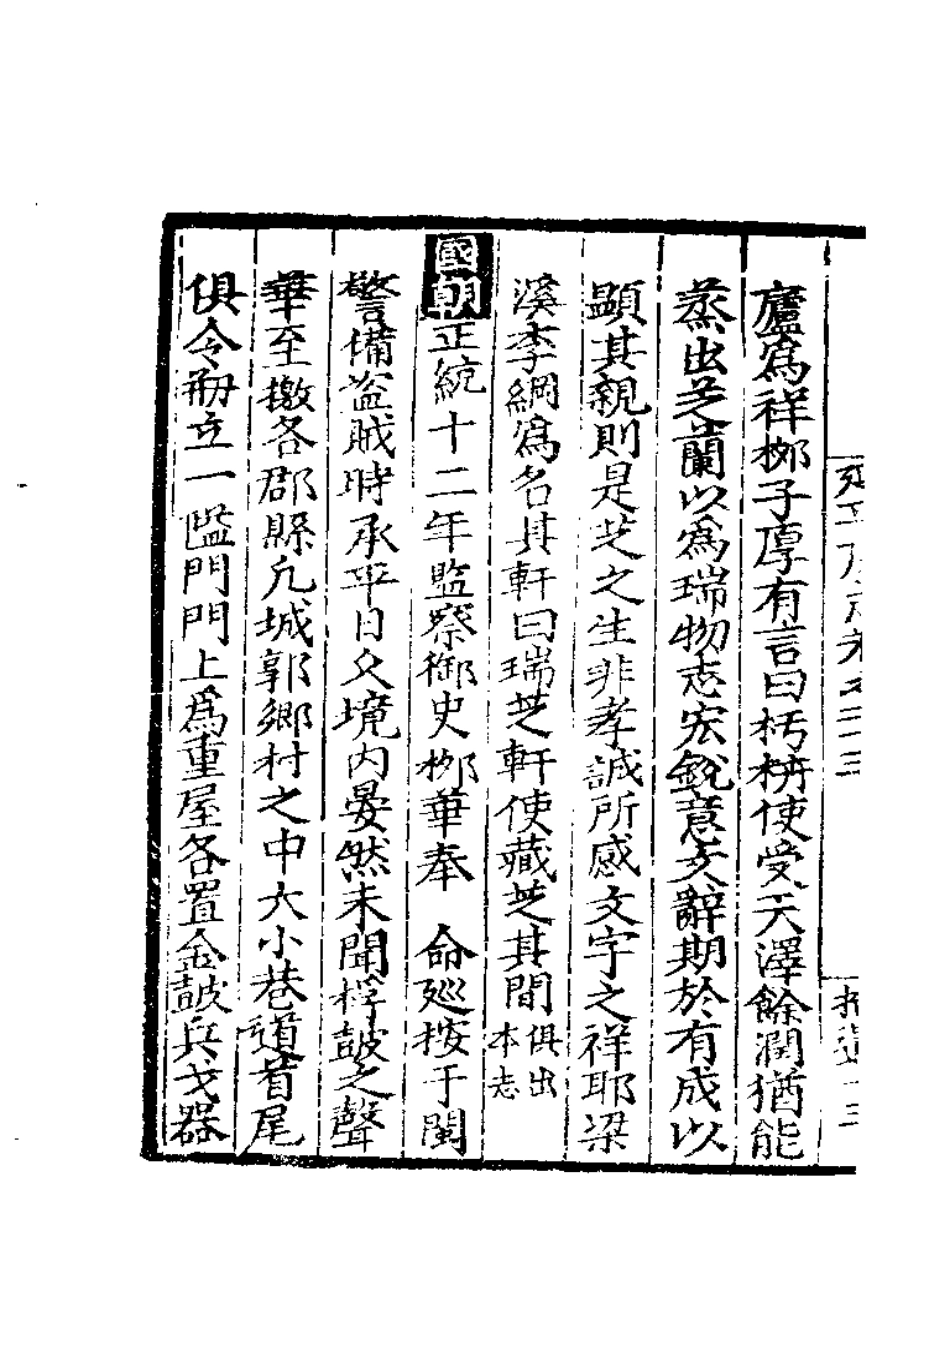 廬爲祥栁子厚有言曰朽枿使受天澤餘潤猶能
蒸出芝蘭以爲瑞物志宏銳意文辭期於有成以
顯其親則是芝之生非孝誠所感文字之祥耶梁
溪李綱爲名其軒曰瑞芝軒使藏芝其間俱出本志
國朝正統十二年監察御史栁華奉 命廵按于閩
警備盗賊時承平日久境内晏然未聞桴鼓之聲
華至檄各郡縣凢城郭鄉村之中大小巷道首尾
俱令刱立一隘門門上爲重屋各置金鼓兵戈器